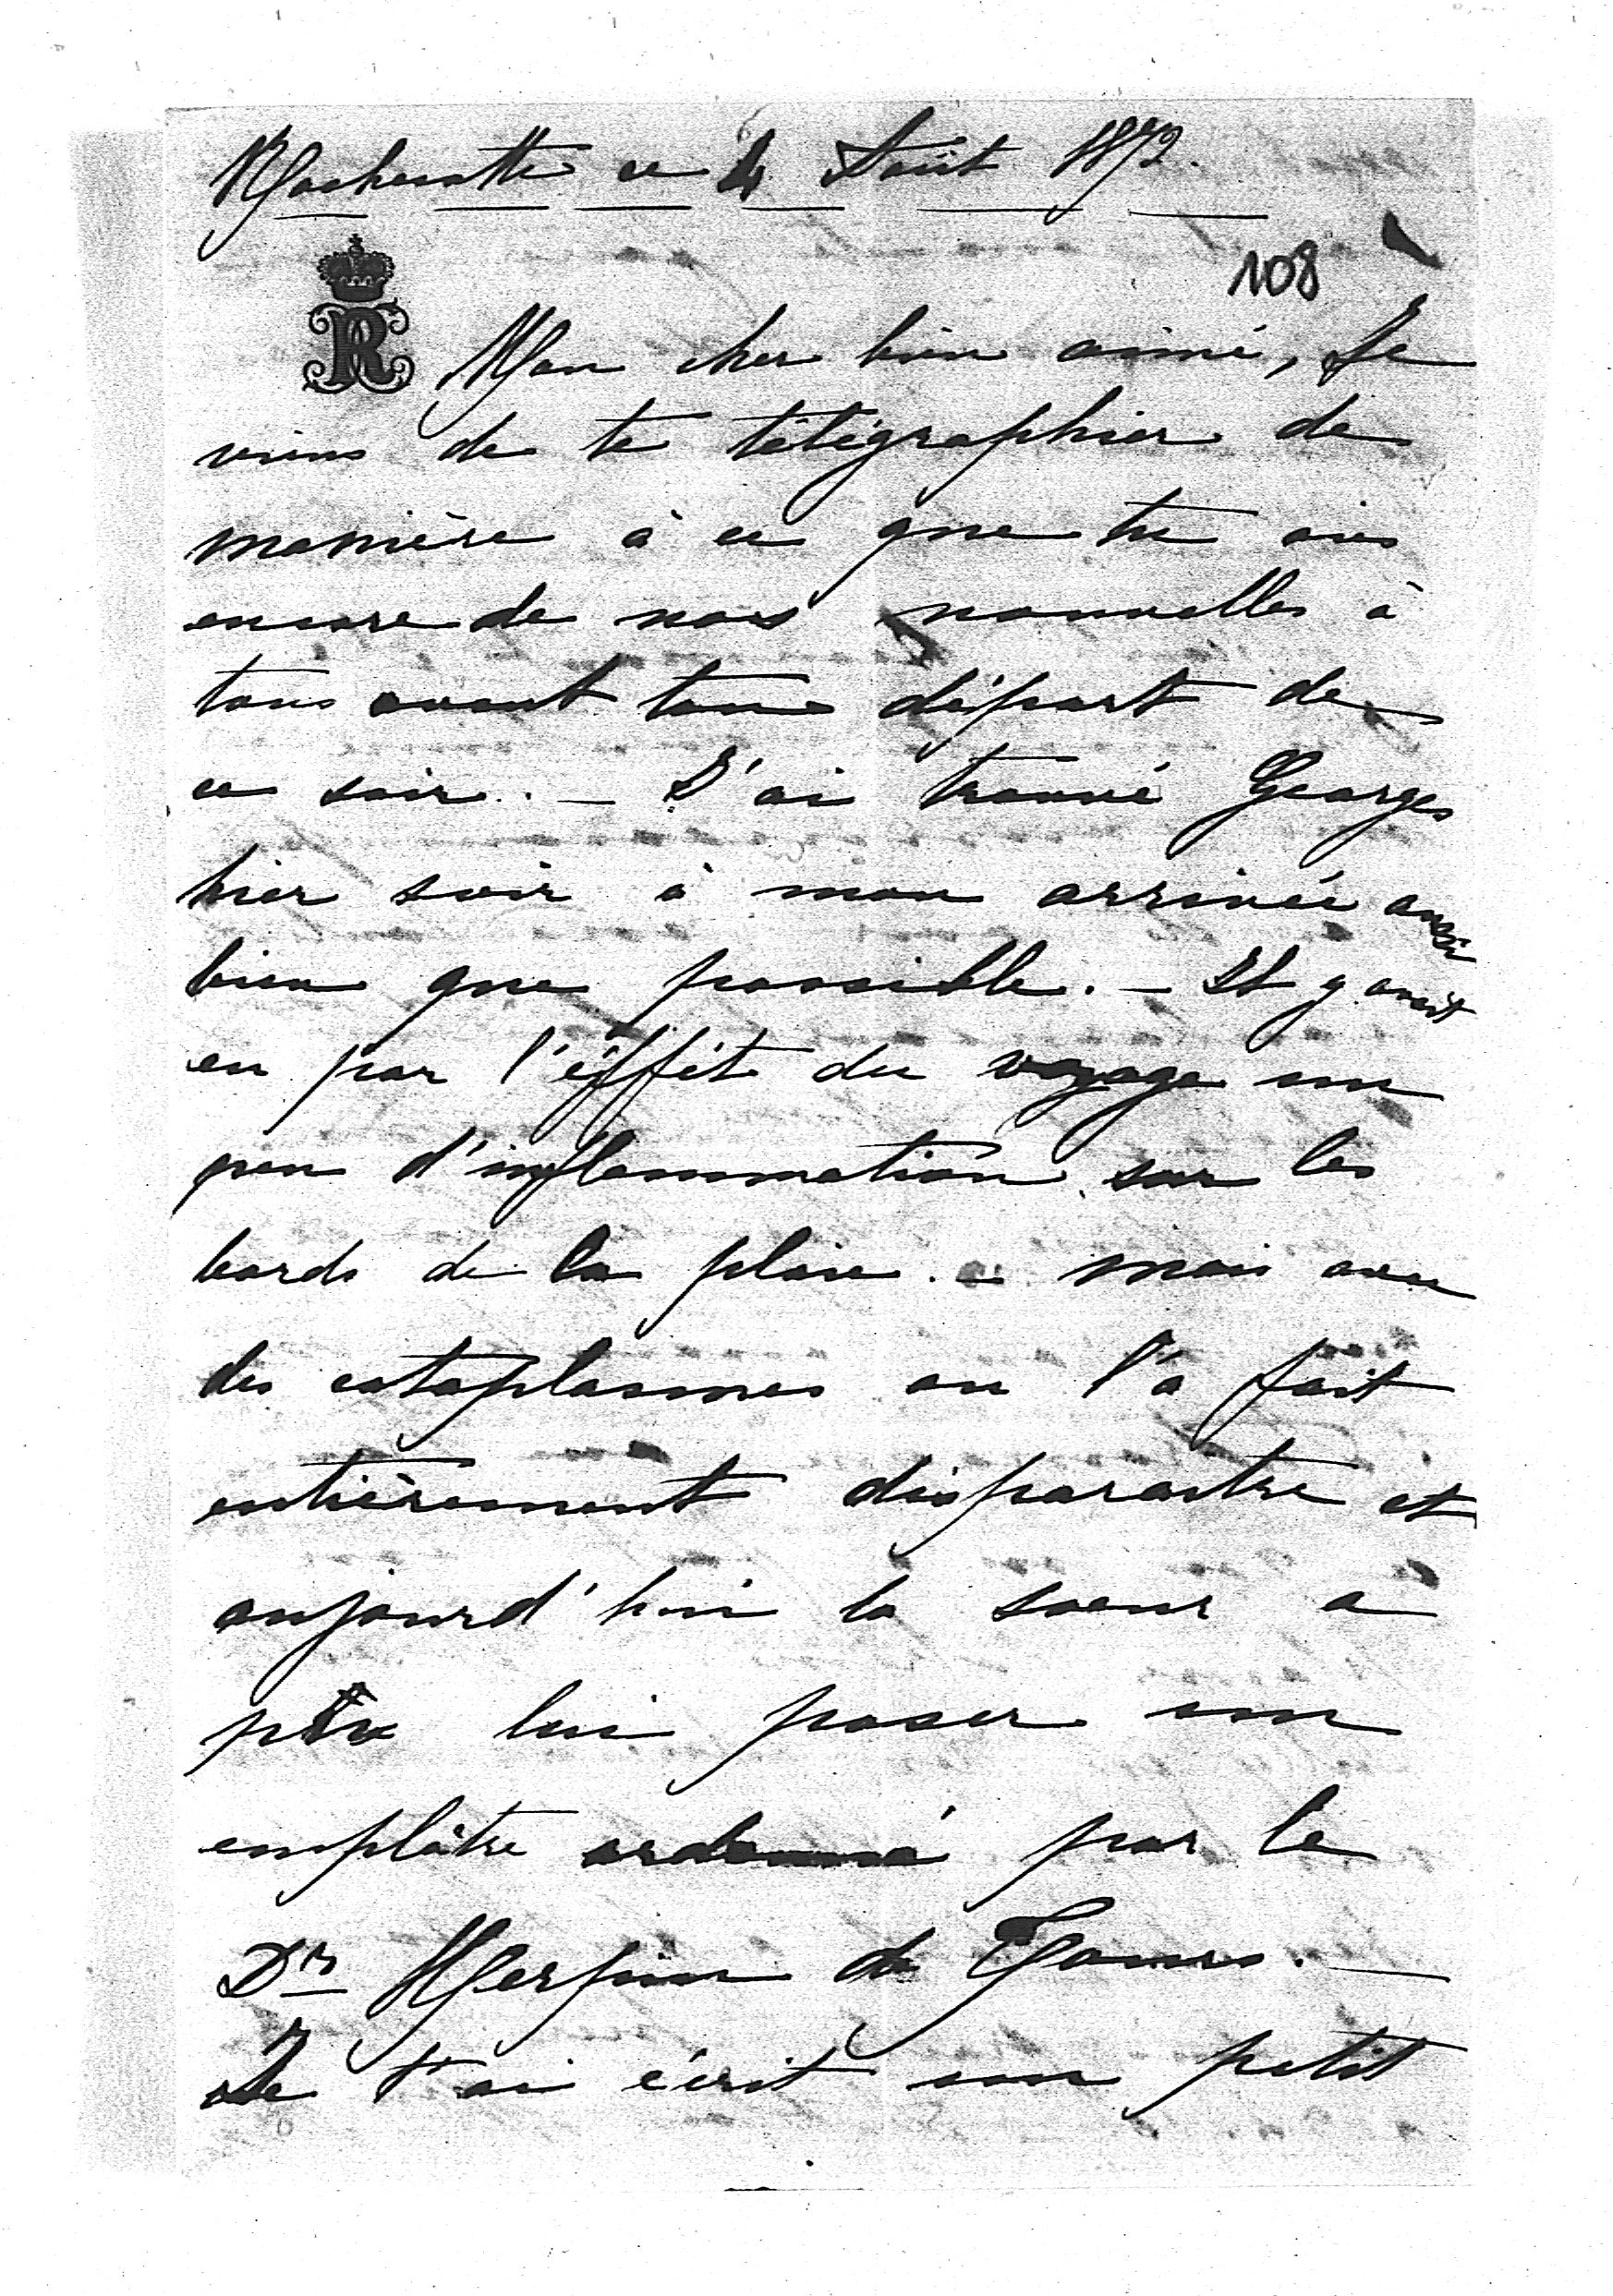 Rochecotte ce 4 Août 1872.
108
R
Mon cher bien aimé, Je
viens de te télégraphier de
manière à ce que tu aies
encore de nos nouvelles à
tous avant ton départ de
ce soir. — J'ai trouvé Georges
hier soir à mon arrivée aussi
bien que possible. — Il y avait
eu par l'éffèt du voyage un
peu d'inflammation sur les
bords de la plaie. — mais avec
des cataplasmes on l'a fait
entièrement disparaitre et
aujourd'hui la soeur a
pû lui poser un
emplâtre ordonné par le
Dr Herpin de Tours. —
Je t'ai écrit un petit